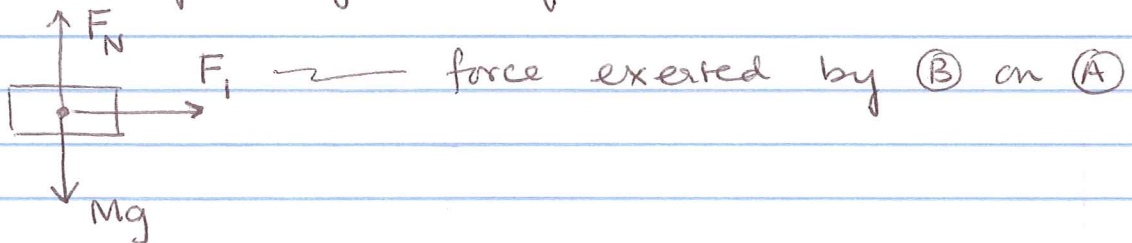 F_N
F_1 force exerted by Ⓑ on Ⓐ
Mg